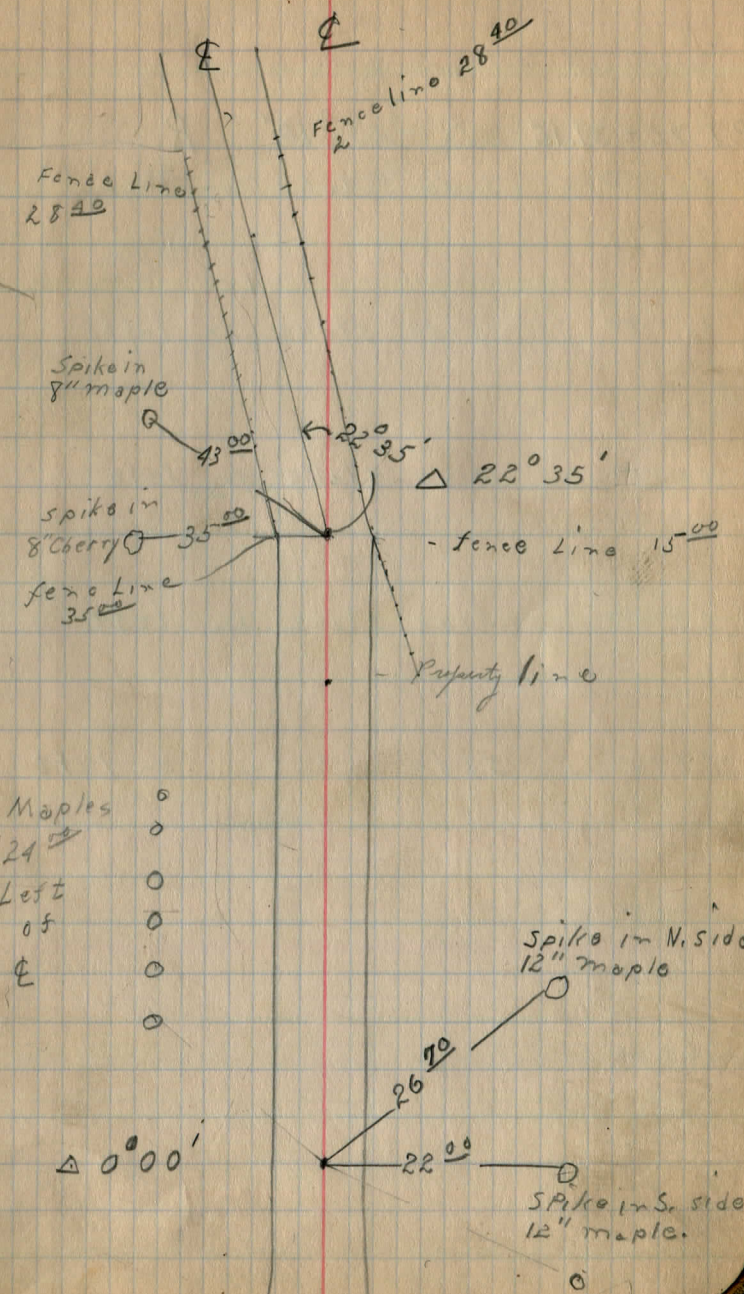 ℄
℄
Fence line 28 40
2
Fence Line
28 40
Spike in
8" maple
43 00
22° 35'
△ 22° 35'
spike in
8" Cherry
35 00
- fence Line 15 00
fenc Line
35 00
- Property line
Maples
24 00
Left
of
℄
Spike in N. side
12" maple
26 70
△ 0° 00'
22 00
Spike in S. side
12" maple.